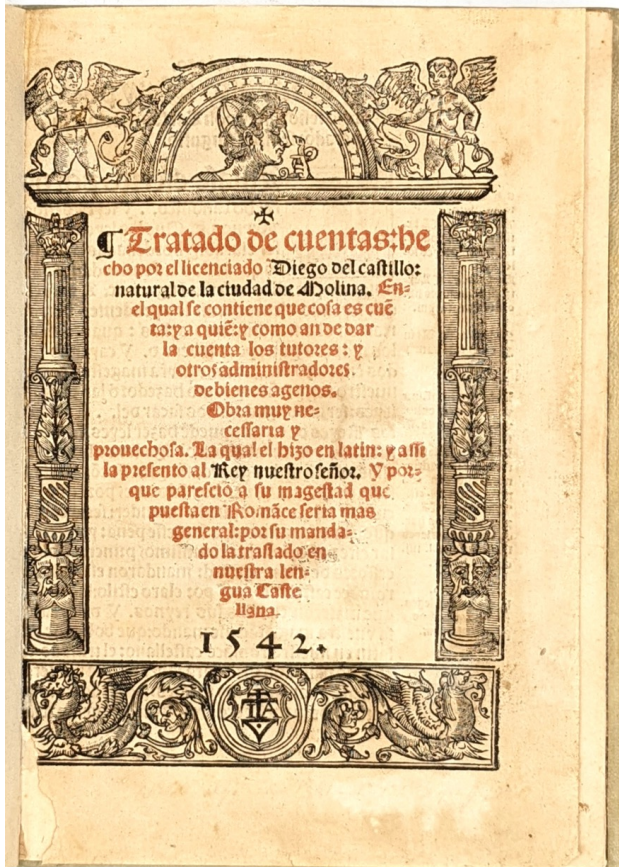 ✠
¶ Tratado de cuentas: he
cho por el licenciado Diego del castillo:
natural de la ciudad de Molina. En-
el qual se contiene que cosa es cuẽ
ta: y a quiẽ: y como an de dar
la cuenta los tutores: y
otros administradores
de bienes agenos.
Obra muy ne-
cessaria y
prouechosa. La qual el hizo en latin: y assi
la presento al Rey nuestro señor. Y por-
que parescio a su magestad que
puesta en Romãce seria mas
general: por su manda-
do la traslado en
nuestra len-
gua Caste
llana.
1542.